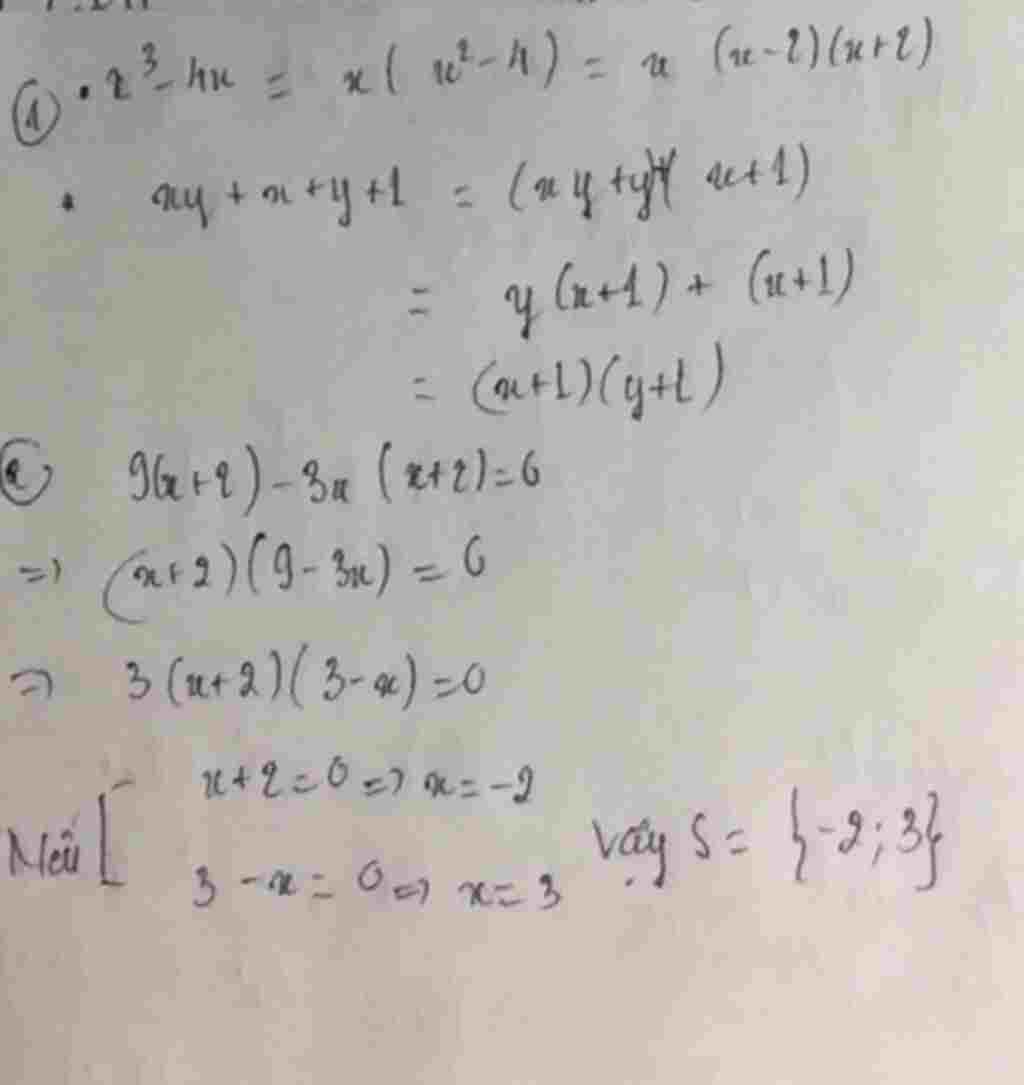 ① • x³ - 4x = x( x² - 4 ) = x (x-2)(x+2)
• xy + x + y + 1 = (xy + y)+( x+1)
= y (x+1) + (x+1)
= (x+1)(y+1)
② 9(x+2) - 3x (x+2) = 6
=> (x+2)(9 - 3x) = 6
=> 3 (x+2)( 3-x) = 0
x+2 = 0 => x = -2
Nếu [ Vậy S = {-2; 3}
3 - x = 0 => x = 3